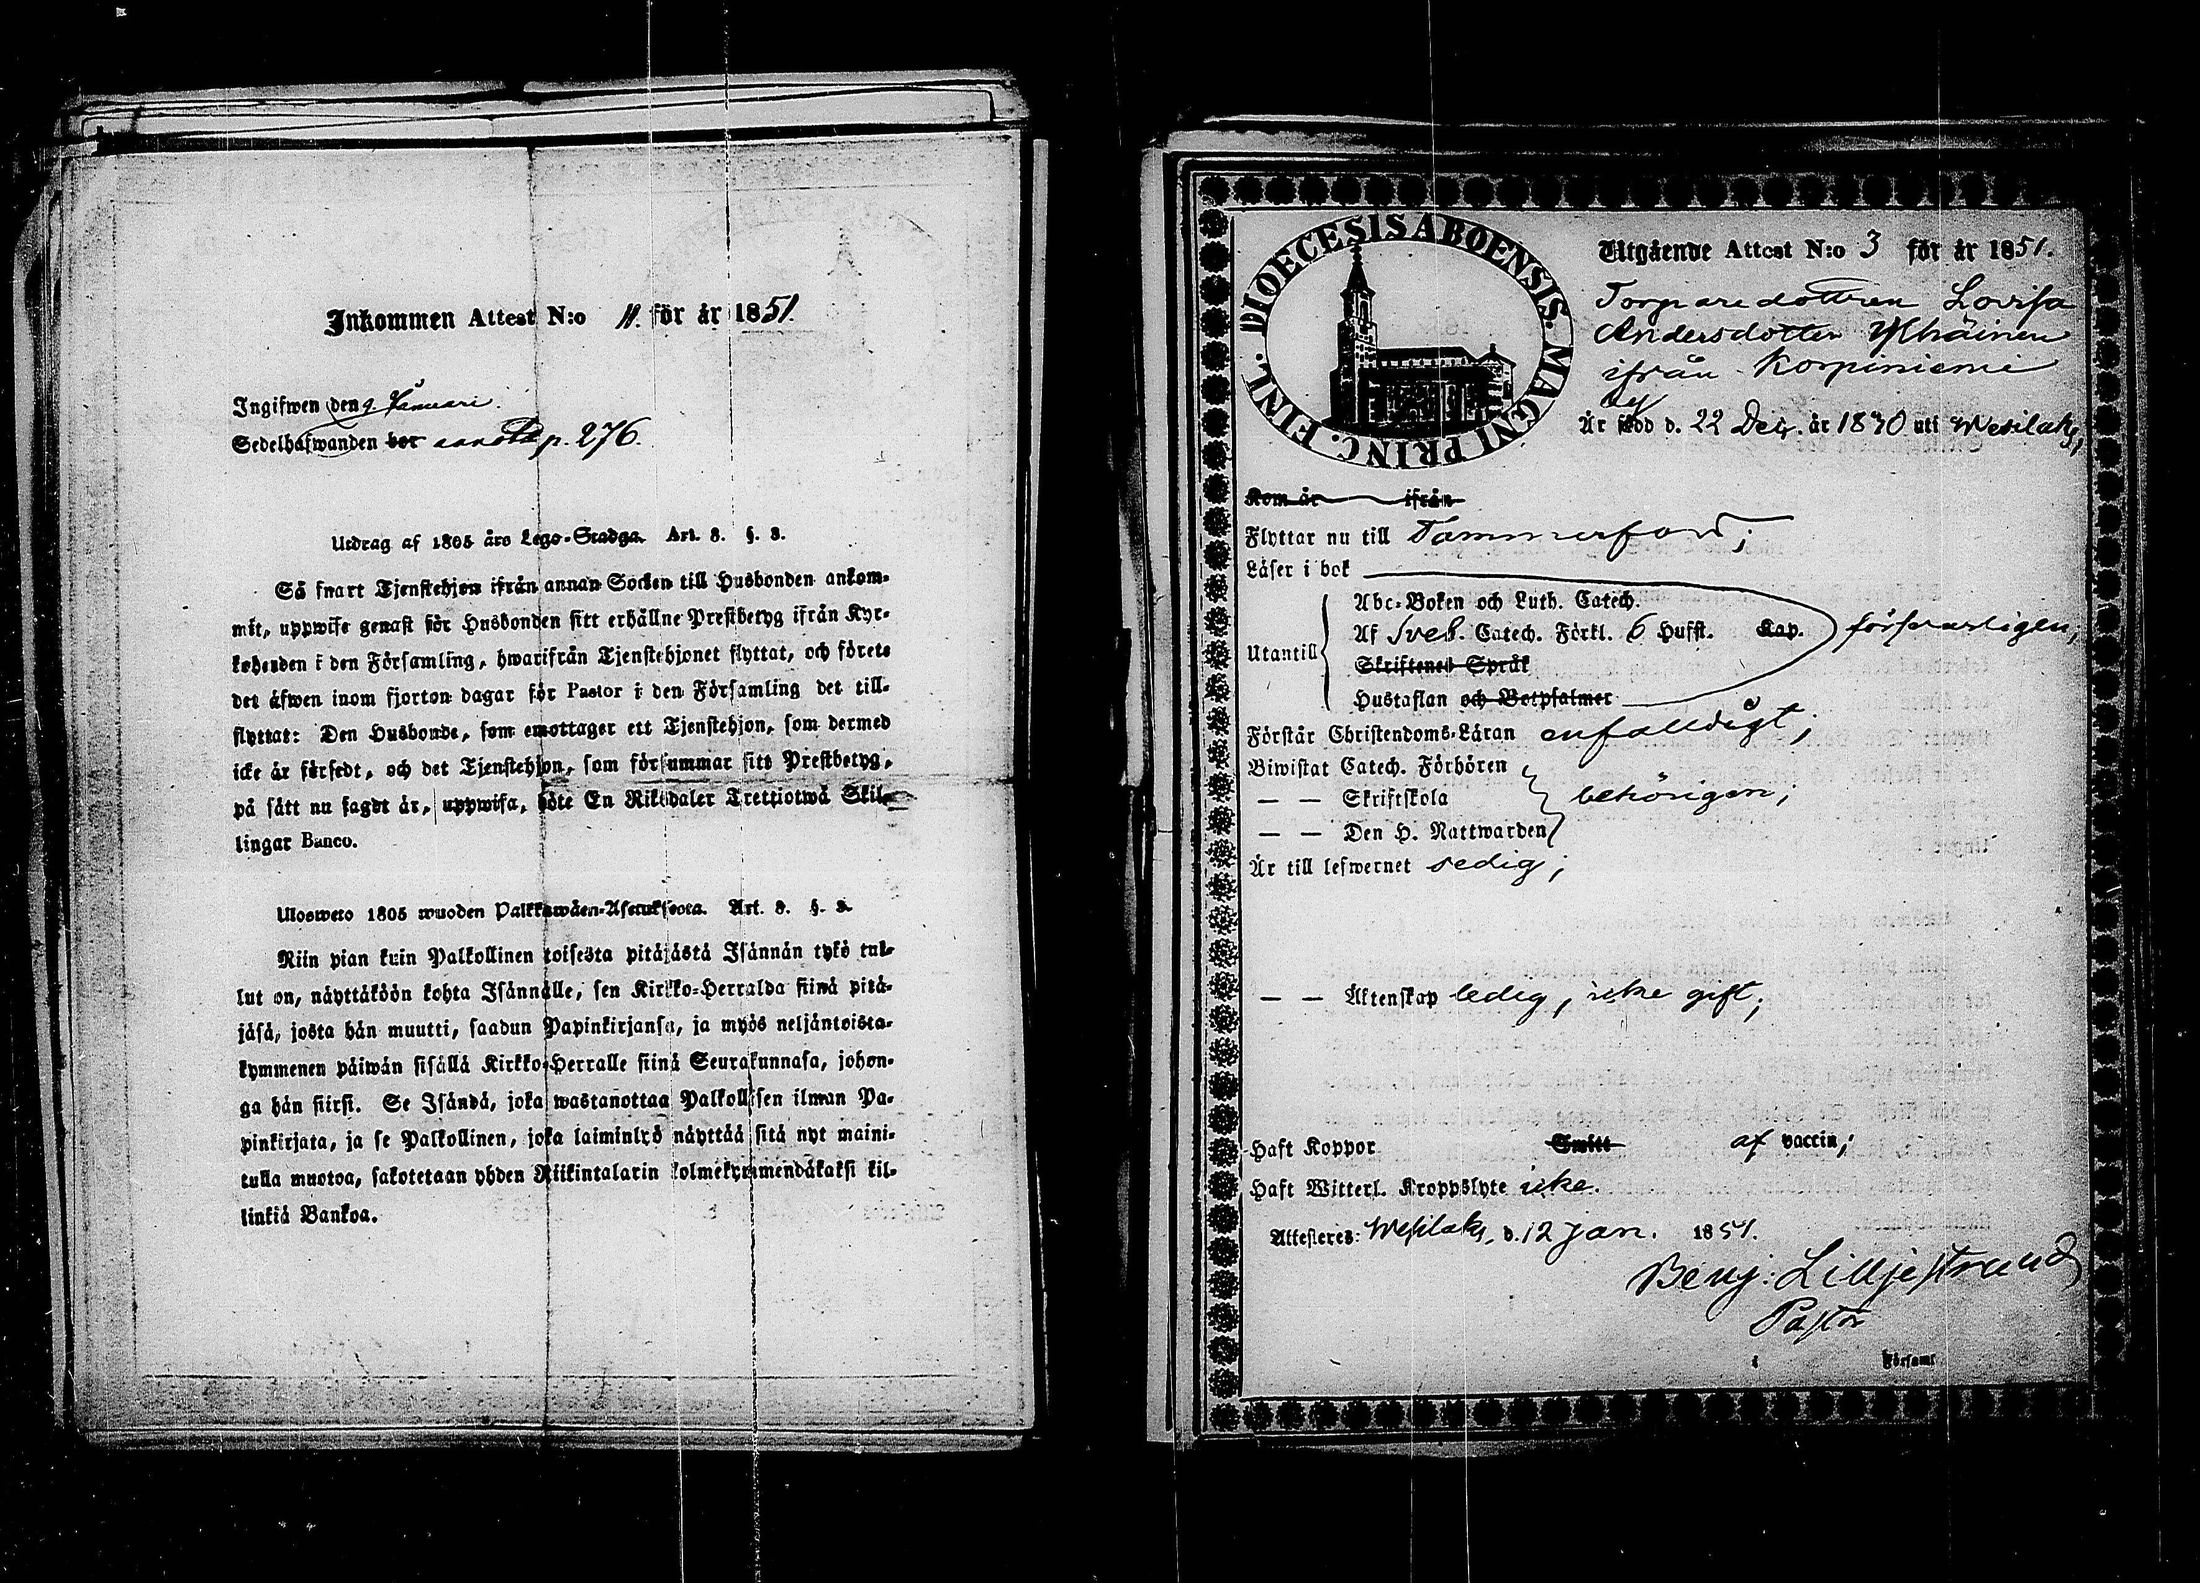 Inkommen Attest N:o 11. för år 1851.
Ingifwen den 9. Januari.
Sedelhafwanden bor p. 276.
Utdrag af 1805 års Lego-Stadga. Art. 8. §. 3.
Så snart Tjenstehjon ifrån annan Socken till Husbonden ankom-
mit, uppwise genast för Husbonden sitt erhållne Prestbetyg ifrån Kyr-
koherden i den Församling, hwarifrån Tjenstehjonet flyttat, och förete
det äfwen inom fjorton dagar för Pastor i den Församling det till-
flyttat: Den Husbonde, som emottager ett Tjenstehjon, som dermed
icke är försedt, och det Tjenstehjon, som försummar sitt Prestbetyg,
på sätt nu sagdt är, uppwisa, böte En Riksdaler Trettiotwå Skil-
lingar Banco.
Ulosweto 1805 wuoden Palkkawäen-Asetuksesta. Art. 8. §. 3.
Niin pian kuin Palkollinen toisesta pitäjästä Isännän tykö tul-
lut on, näyttäköön kohta Isännälle, sen Kirkko-Herralda siinä pitä-
jäsä, josta hän muutti, saadun Papinkirjansa, ja myös neljäntoista-
kymmenen päiwän sisällä Kirkko-Herralle siinä Seurakunnasa, johon-
ga hän siirsi. Se Isändä, joka wastanottaa Palkollisen ilman Pa-
pinkirjata, ja se Palkollinen, joka laiminlyö näyttää sitä nyt maini-
tulla muotoa, sakotetaan yhden Riikintalarin kolmekymmendäkaksi kil-
linkiä Bankoa.
DIOECESIS ABOENSIS. MAGNI PRINC. FINL.
Utgående Attest N:o 3 för år 1851.
Torparedottren Lovisa
Andersdotter Ylhäinen
ifrån Korpiniemi
by
Är född d. 22 Dec. år 1830 uti Wesilaks,
Kom år ifrån
Flyttar nu till Tammerfors;
Läser i bok
Abc-Boken och Luth. Catech.
Utantill Af Sveb. Catech. Förkl. 6 Hufst. Kap. försvarligen,
Skriftenes Språk
Hustaflan och Botpsalmer
Förstår Christendoms-Läran enfalldigt;
Biwistat Catech. Förhören
— — Skriftskola behörigen;
— — Den H. Nattwarden
Är till lefwernet sedig;
— — Äktenskap ledig, icke gift;
Haft Koppor Smitt af vaccin;
Haft Witterl. Kroppslyte icke.
Attesteres: Wesilaks, d. 12 Jan. 1851.
Benj: Lilljestrand
Pastor
i Församl